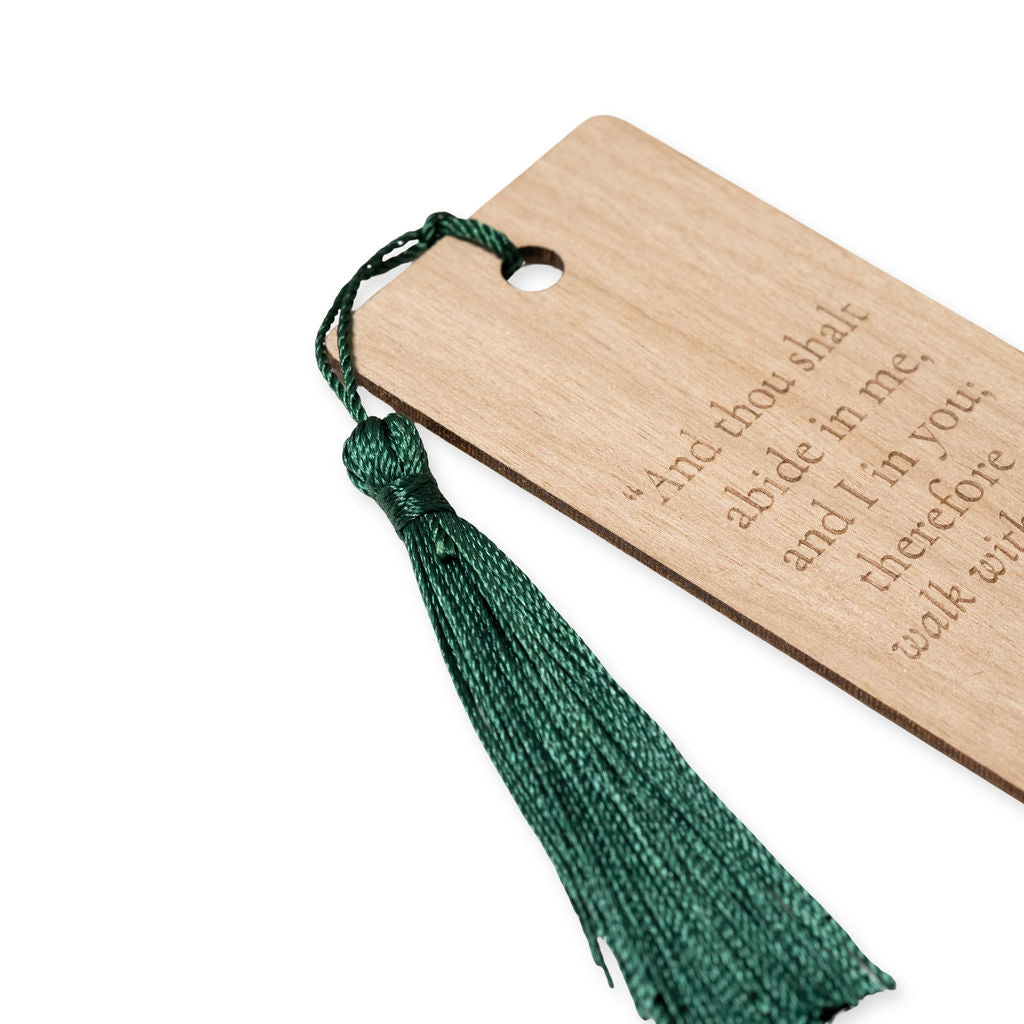 “And thou shalt
abide in me,
and I in you;
therefore
walk with